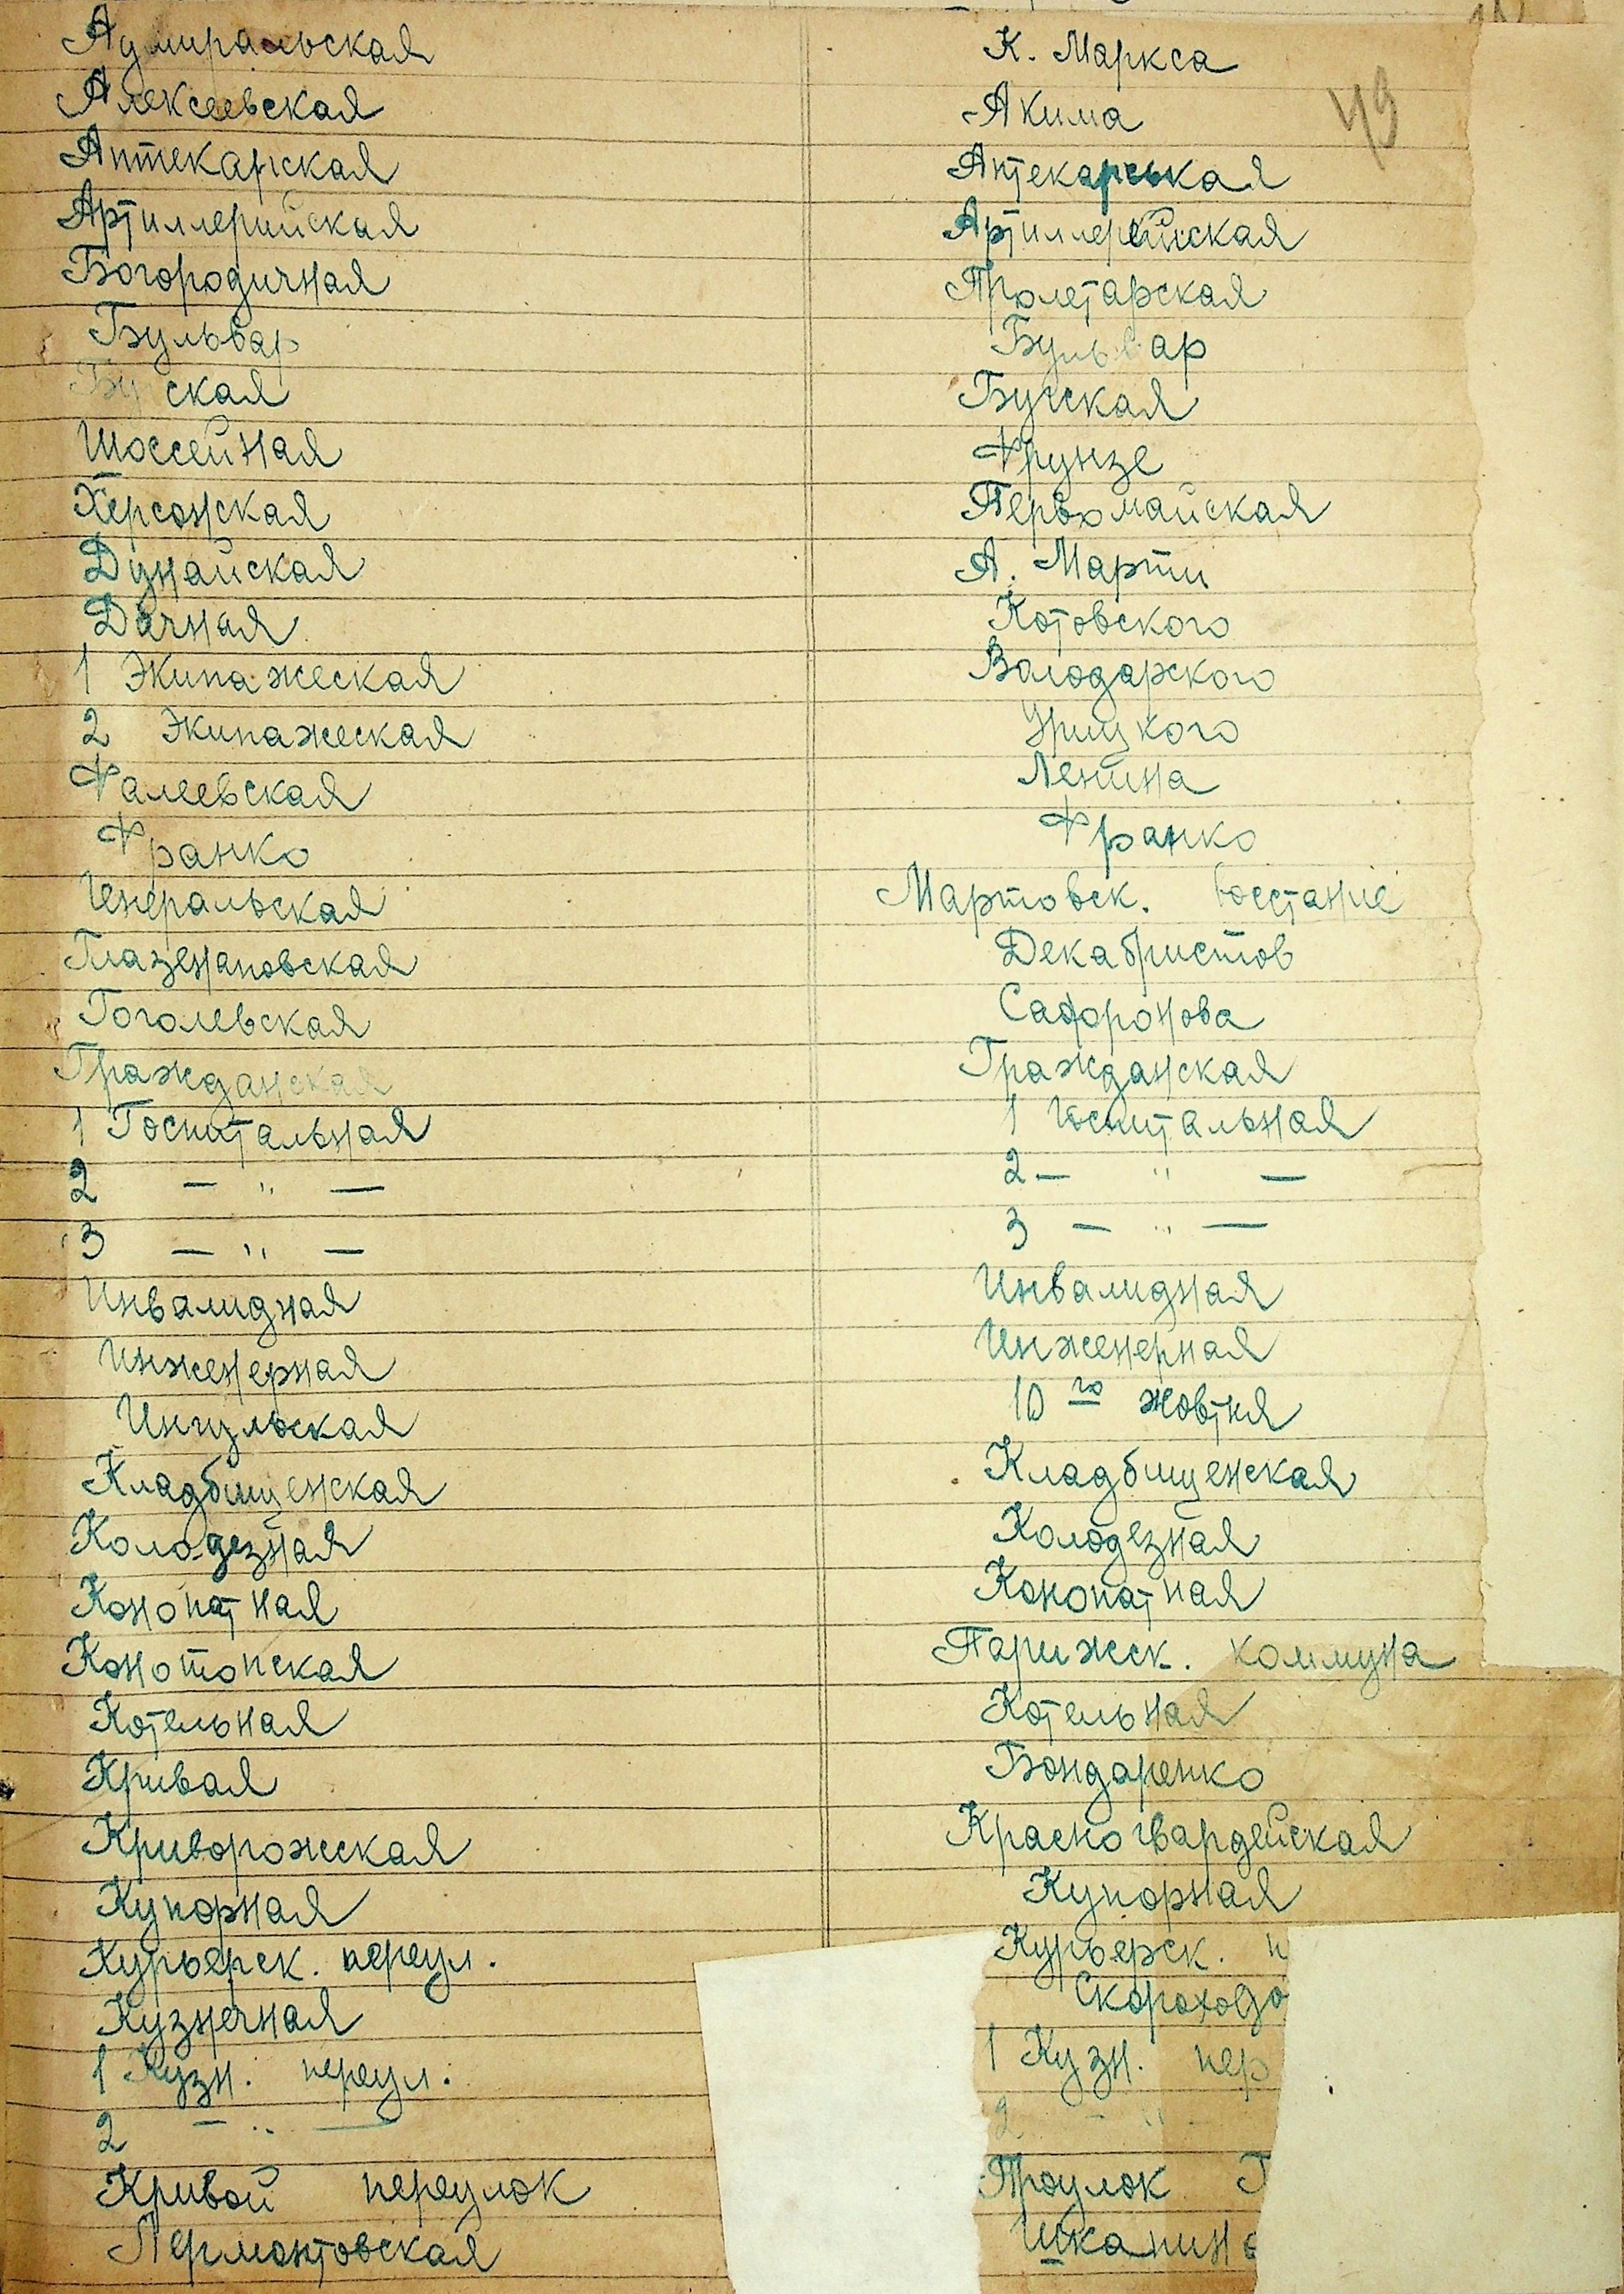 Адмиральская К. Маркса
49
Алексеевская Акима
Аптекарская Аптекарская
Артиллерийская Артиллерийская
Богородичная Пролетарская
Бульвар Бульвар
Бугская Бугская
Шоссейная Фрунзе
Херсонская Первомайская
Дунайская А. Марти
Дачная Котовского
1 Экипажеская Володарского
2 Экипажеская Урицкого
Фалеевская Ленина
Франко Франко
Генеральская Мартовск. восстание
Глазенаповская Декабристов
Гоголевская Сафронова
Гражданская Гражданская
1 Госпитальная 1 Госпитальная
2 — " — 2 — " —
3 — " — 3 — " —
Инвалидная Инвалидная
Инженерная Инженерная
Ингульская 10го жовтня
Кладбищенская Кладбищенская
Колодезная Колодезная
Конопатная Конопатная
Конотопская Парижск. коммуна
Котельная Котельная
Кривая Бондаренко
Криворожская Красногвардейская
Купорная Купорная
Курьерск. переул. Курьерск. п
Кузнечная Скороходо
1 Кузн. переул. 1 Кузн. пер
2 — " — 2 — "
Кривой переулок Проулок Г
Лермонтовская Шкапин